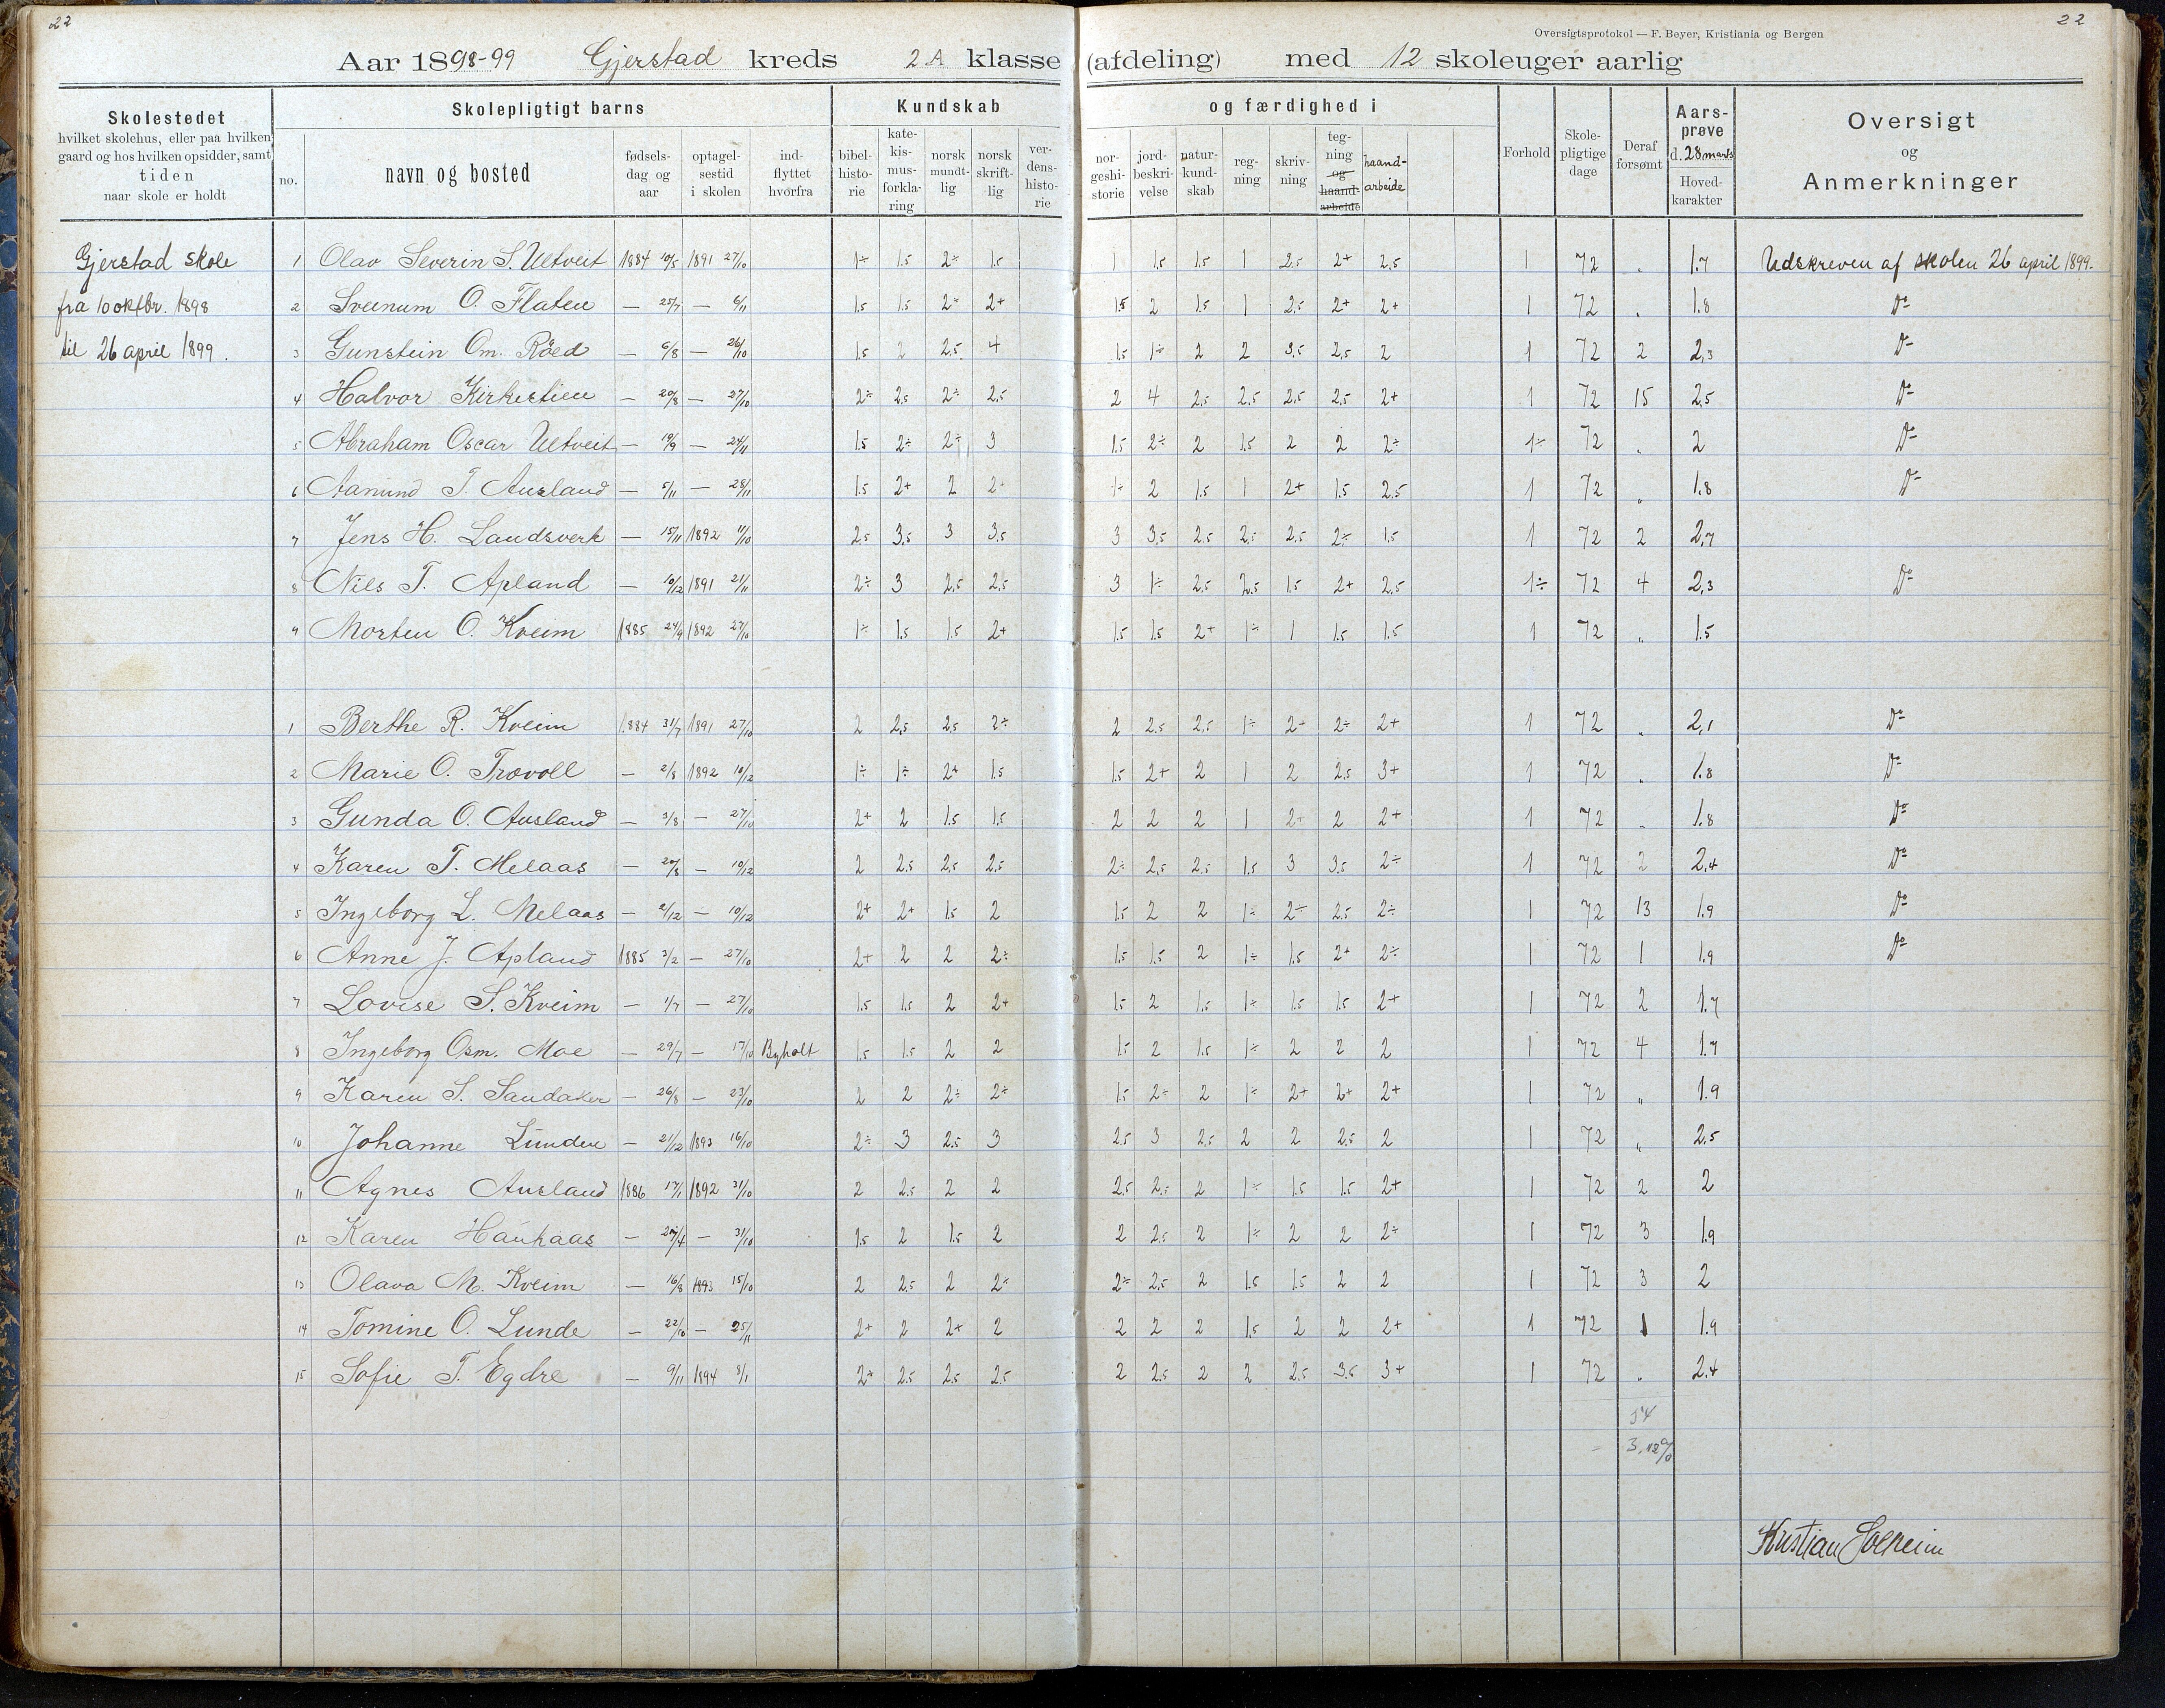 22
22
Oversigtsprotokol — F. Beyer, Kristiania og Bergen
Aar 1898-99 Gjerstad kreds 2 A klasse (afdeling) med 12 skoleuger aarlig
Skolestedet
hvilket skolehus, eller paa hvilken
gaard og hos hvilken opsidder, samt
tiden
naar skole er holdt
Skolepligtigt barns
no.
navn og bosted
fødsels-
dag og
aar
optagel-
sestid
i skolen
ind-
flyttet
hvorfra
Kundskab
bibel-
histo-
rie
kate-
kis-
mus-
forkla-
ring
norsk
mundt-
lig
norsk
skrift-
lig
ver-
dens-
histo-
rie
og færdighed i
nor-
geshi-
storie
jord-
beskri-
velse
natur-
kund-
skab
reg-
ning
skriv-
ning
teg-
ning
og
haand-
arbeide
haand-
arbeide
Forhold
Skole-
pligtige
dage
Deraf
forsømt
Aars-
prøve
d. 28 marts
Hoved-
karakter
Oversigt
og
Anmerkninger
Gjerstad skole
fra 10 oktbr. 1898
til 26 april 1899.
1 Olav Severin S. Ueltveit 1884 10/5 1891 27/10 1÷ 1.5 2÷ 1.5 1 1.5 1.5 1 2.5 2+ 2.5 1 72 „ 1.7 Udskreven af skolen 26 april 1899.
2 Sveinum O. Flaten — 25/7 — 6/11 1.5 1.5 2÷ 2+ 1.5 2 1.5 1 2.5 2+ 2+ 1 72 „ 1.8 Do
3 Gunstein Om. Røed — 6/8 — 26/10 1.5 2 2.5 4 1.5 1÷ 2 2 3.5 2.5 2 1 72 2 2,3 Do
4 Halvor Kirkestien — 20/8 — 27/10 2÷ 2.5 2÷ 2.5 2 4 2.5 2.5 2.5 2.5 2+ 1 72 15 2,5 Do
5 Abraham Oscar Ueltveit — 19/9 — 24/11 1.5 2÷ 2÷ 3 1.5 2÷ 2 1.5 2 2 2÷ 1÷ 72 „ 2 Do
6 Aanund T. Ausland — 5/11 — 28/11 1.5 2+ 2 2+ 1÷ 2 1.5 1 2+ 1.5 2.5 1 72 „ 1.8 Do
7 Jens H. Landsverk — 15/11 1892 11/10 2.5 3.5 3 3.5 3 3.5 2.5 2.5 2.5 2÷ 1.5 1 72 2 2,7
8 Nils T. Apland — 10/12 1891 21/11 2÷ 3 2.5 2.5 3 1÷ 2.5 2.5 1.5 2+ 2.5 1÷ 72 4 2,3 Do
9 Morten O. Kveim 1885 24/9 1892 27/10 1÷ 1.5 1.5 2+ 1.5 1.5 2+ 1÷ 1 1.5 1.5 1 72 „ 1.5
1 Berthe R. Kveim 1884 31/7 1891 27/10 2 2.5 2.5 2÷ 2 2.5 2.5 1÷ 2+ 2÷ 2+ 1 72 „ 2,1 Do
2 Marie O. Trovoll — 2/8 1892 10/12 1÷ 1÷ 2+ 1.5 1.5 2+ 2 1 2 2.5 3+ 1 72 „ 1.8 Do
3 Gunda O. Ausland — 3/8 — 27/10 2+ 2 1.5 1.5 2 2 2 1 2+ 2 2+ 1 72 „ 1.8 Do
4 Karen T. Melaas — 20/8 — 10/12 2 2.5 2.5 2.5 2÷ 2.5 2.5 1.5 3 3.5 2÷ 1 72 2 2,4 Do
5 Ingeborg L. Melaas — 2/12 — 10/12 2+ 2+ 1.5 2 1.5 2 2 1÷ 2÷ 2.5 2÷ 1 72 13 1.9 Do
6 Anne J. Apland 1885 3/2 — 27/10 2+ 2 2 2÷ 1.5 1.5 2 1÷ 1.5 2+ 2÷ 1 72 1 1.9 Do
7 Lovise S. Kveim — 1/7 — 27/10 1.5 1.5 2 2+ 1.5 2 1.5 1÷ 1.5 1.5 2+ 1 72 2 1.7
8 Ingeborg Osm. Moe — 29/7 — 17/10 Byholt 1.5 1.5 2 2 1.5 2 1.5 1÷ 2 2 2 1 72 4 1.7
9 Karen S. Sandaker — 26/8 — 23/10 2 2 2÷ 2÷ 1.5 2÷ 2 1÷ 2+ 2+ 2+ 1 72 „ 1.9
10 Johanne Lunden — 21/12 1893 16/10 2÷ 3 2.5 3 2.5 3 2.5 2 2 2.5 2 1 72 „ 2.5
11 Agnes Ausland 1886 17/1 1892 31/10 2 2.5 2 2 2.5 2.5 2 1÷ 1.5 1.5 2+ 1 72 2 2
12 Karen Haukaas — 27/4 — 31/10 1.5 2 1.5 2 2 2.5 2 1÷ 2 2 2÷ 1 72 3 1.9
13 Olava M. Kveim — 16/8 1893 15/10 2 2.5 2 2÷ 2÷ 2.5 2 1.5 1.5 2 2 1 72 3 2
14 Tomine O. Lunde — 22/10 — 25/11 2+ 2 2+ 2 2 2 2 1.5 2 2 2+ 1 72 1 1.9
15 Sofie T. Egdre — 9/11 1894 8/1 2+ 2.5 2.5 2.5 2 2.5 2 2 2.5 3.5 3+ 1 72 „ 2.4
54
3,12%
Kristian Solheim